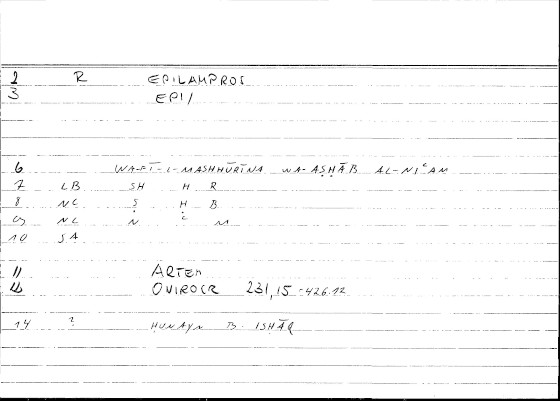 2 R EPILAMPROS
3 EPI/
6 WA-FĪ-L-MASHHŪRĪNA WA-AṢḤĀB AL-NIʿAM
7 LB SH H R
8 NC Ṣ Ḥ B
9 NC N ʿ M
10 SA
11 ARTEM
12 OVIROCR 231,15-426.12
14 ? ḤUNAYN B. ISḤĀQ